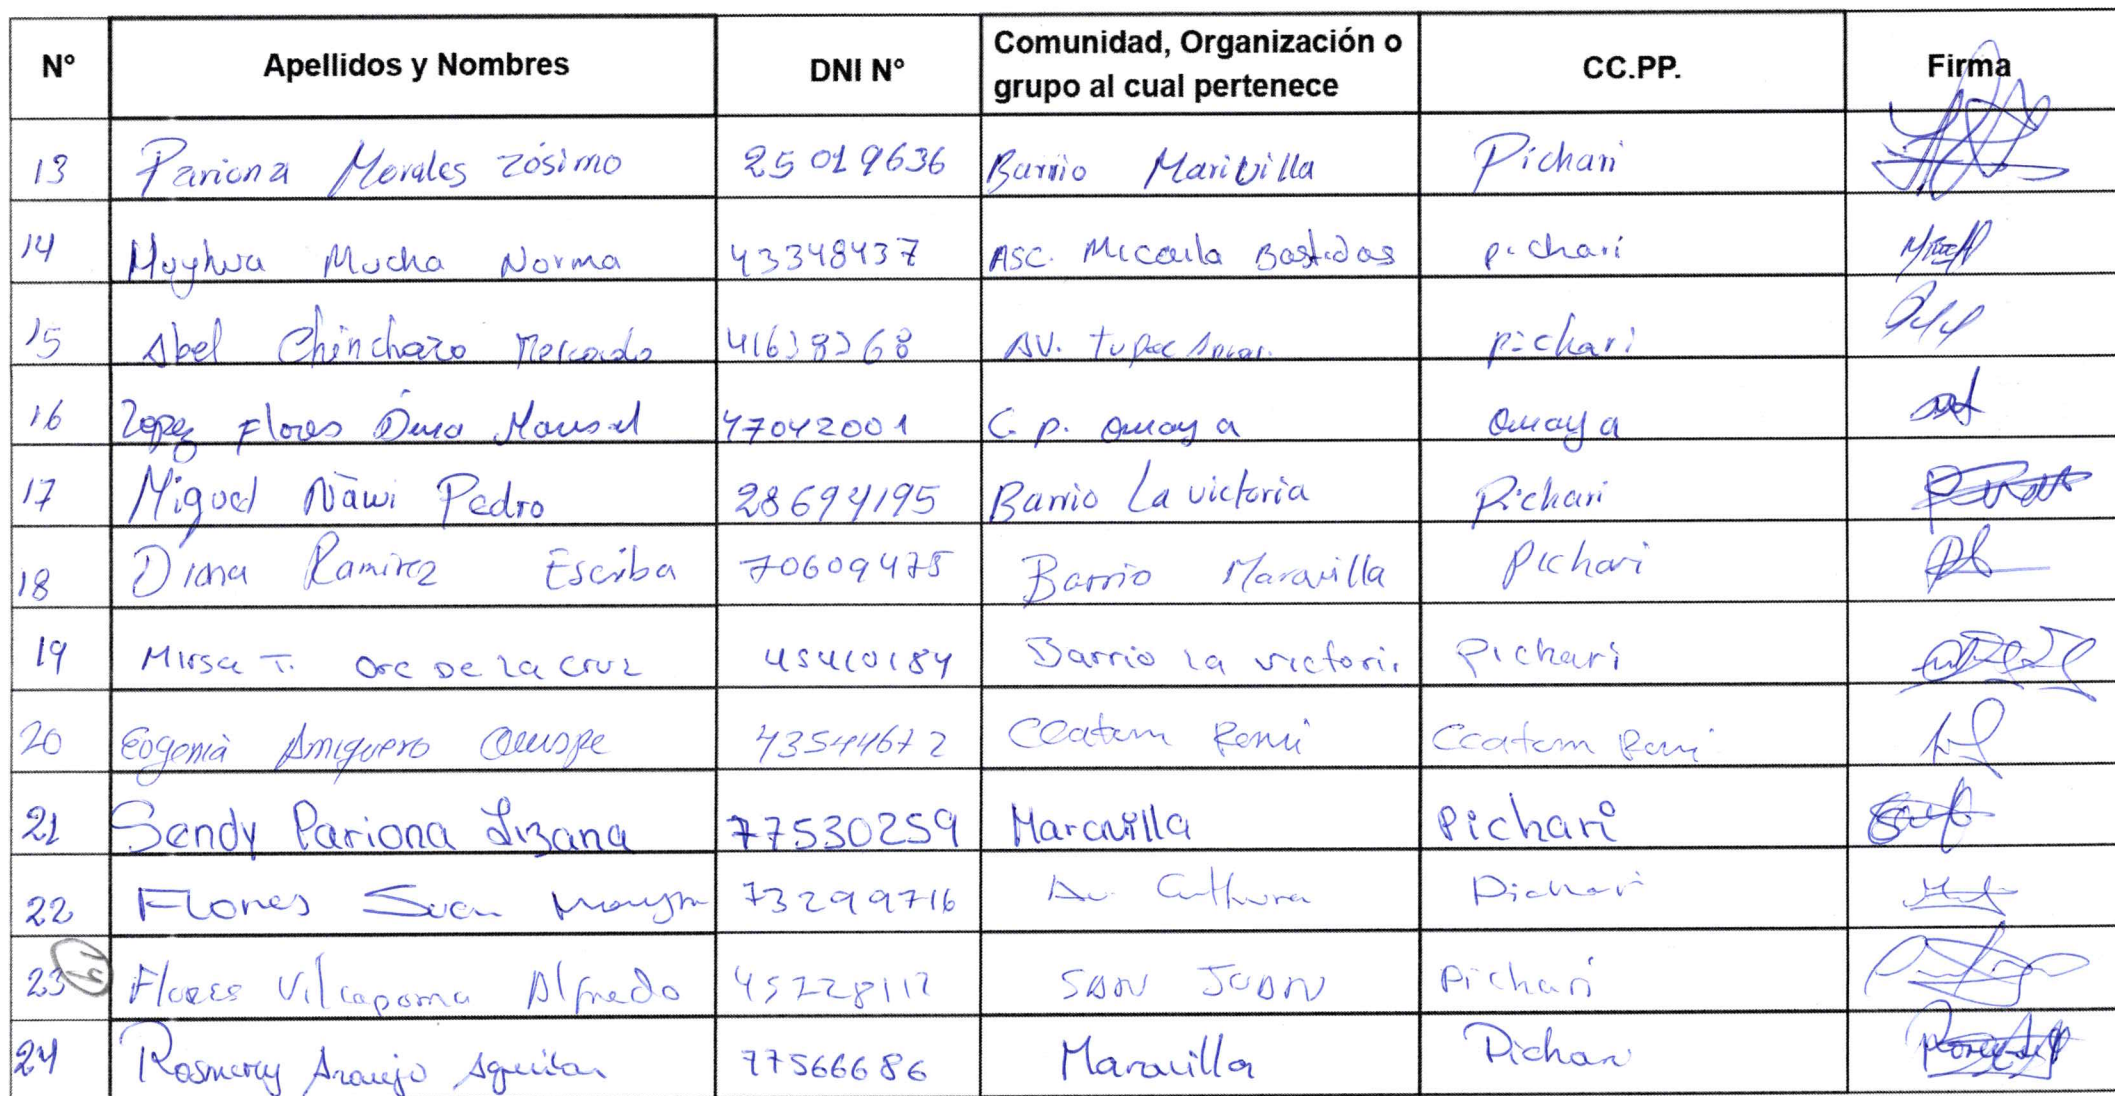 N° Apellidos y Nombres DNI N° Comunidad, Organización o grupo al cual pertenece CC.PP. Firma
13 Pariona Morales Zósimo 25019636 Barrio Maribilla Pichari
14 Muyhua Mucha Norma 43348437 ASC. Micaila Bastidas pichari
15 Abel Chinchazo Mercado AV. tupac Amar. pichari
16 Lopez Flores 47042001 C. p. Omaya Omaya
17 Miguel Ñawi Pedro 28694195 Barrio La victoria Pichari
18 Diana Ramirez Escriba 70609475 Barrio Maravilla Pichari
19 Mirsa T. Orc De La Cruz 45410184 Barrio La victori. Pichari
20 Eogenia Amiquero Quispe 43544672 Ccatum Rumi Ccatum Rumi
21 Sendy Pariona Lizana 77530259 Maravilla Pichari
22 Flores 73299716 Av Pichari
23 14 Flores Vilcapoma Alfredo 45228112 SAN JUAN Pichari
24 Rosmery Araujo Aguilar 77566686 Maravilla Pichari